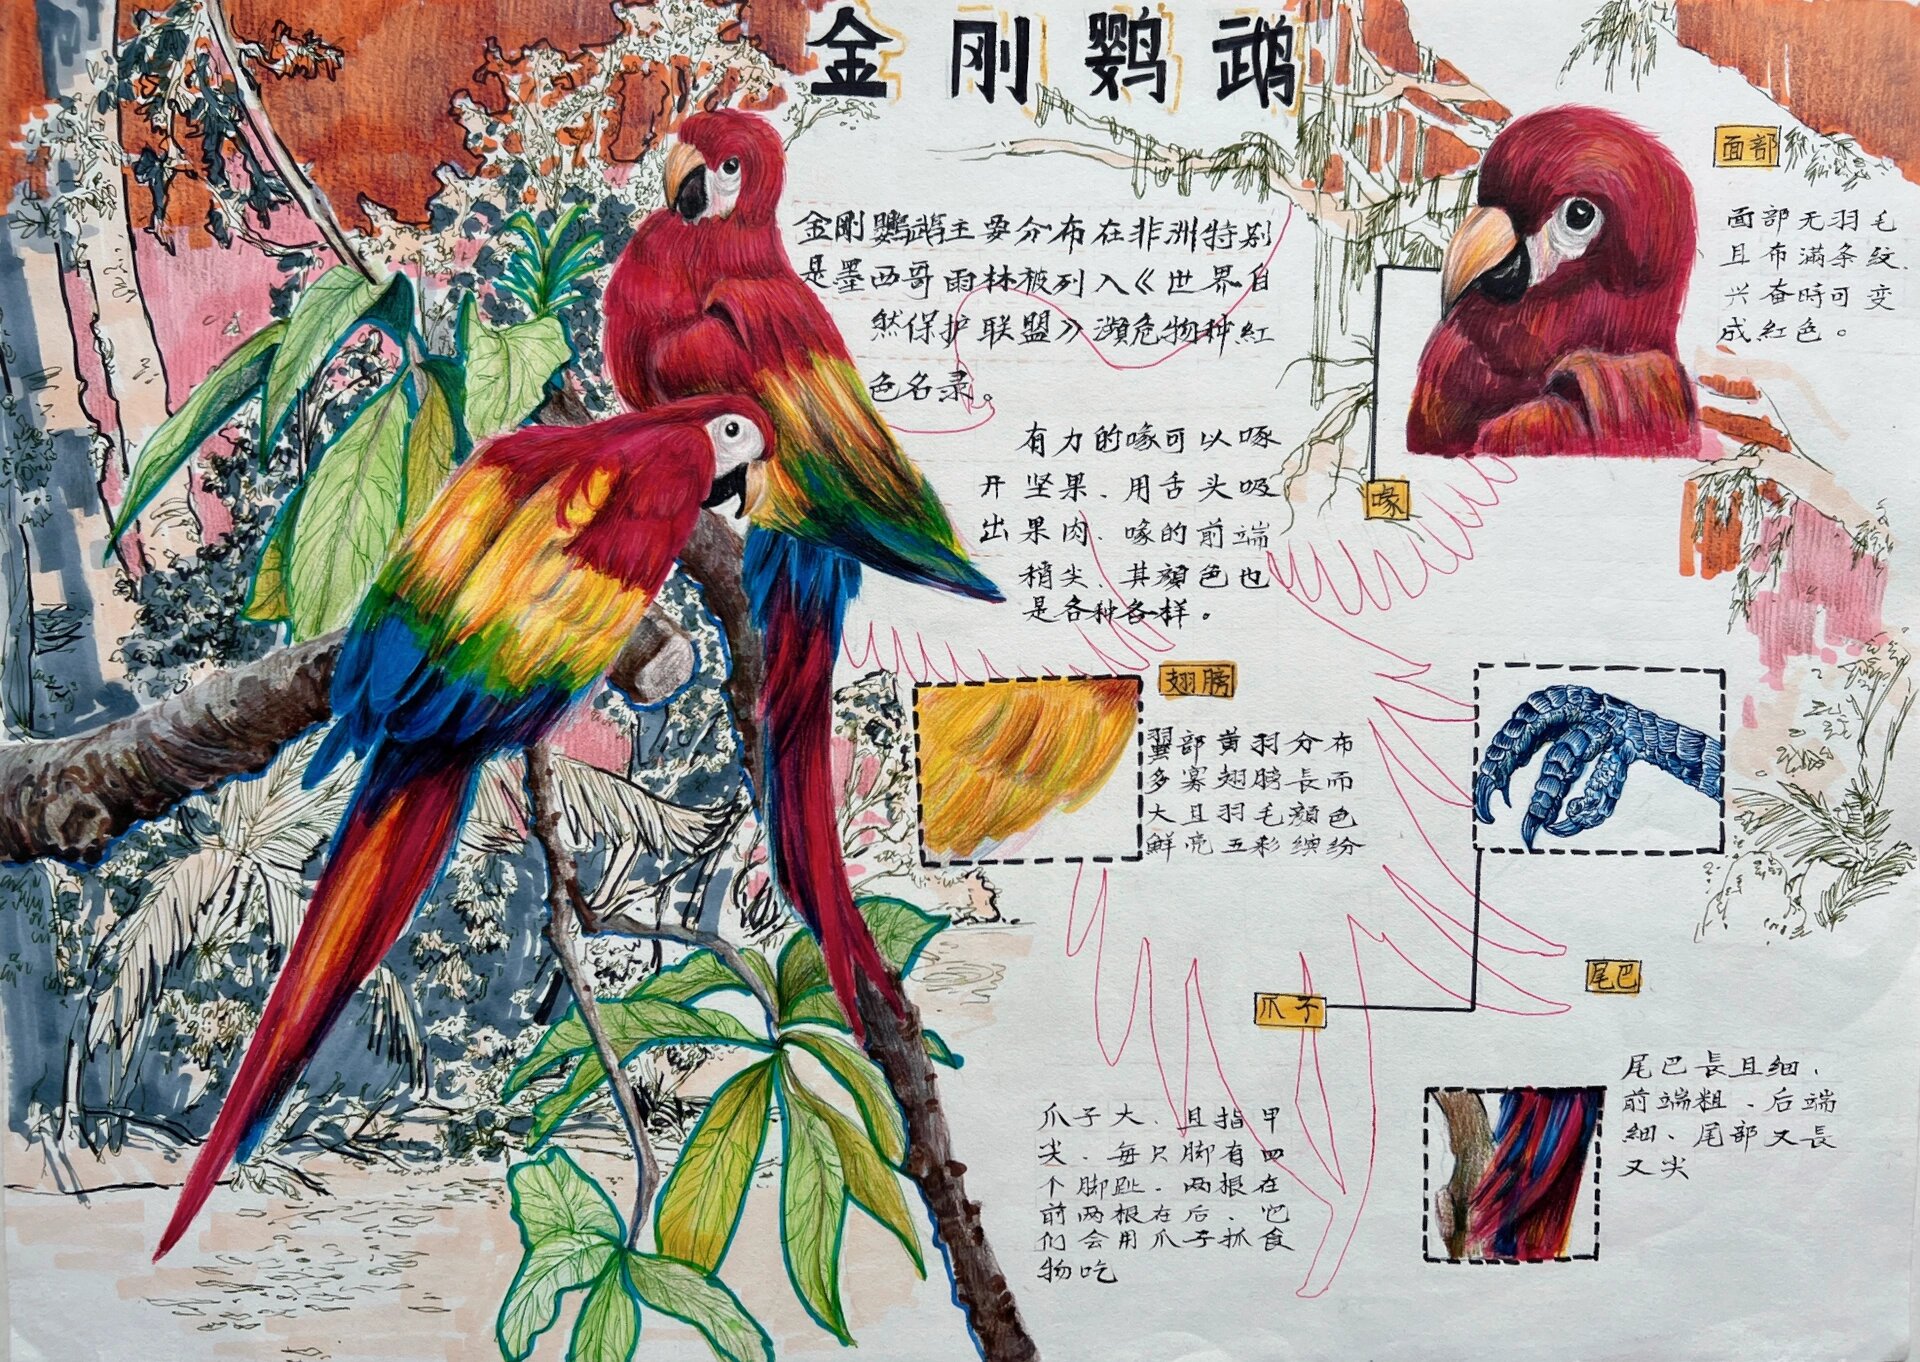 金刚鹦鹉
金刚鹦鹉主要分布在非洲特别
是墨西哥雨林被列入《世界自
然保护联盟》濒危物种紅
色名录。
有力的喙可以啄
开坚果、用舌头吸
出果肉、喙的前端
稍尖、其顔色也
是各种各样。
面部
面部无羽毛
且布满条紋、
兴奋時可变
成紅色。
喙
翅膀
翼部黄羽分布
多寡翅膀長而
大且羽毛顔色
鮮亮五彩缤纷
爪子
爪子大、且指甲
尖、每只脚有四
个脚趾、两根在
前两根在后、它
们会用爪子抓食
物吃
尾巴
尾巴長且细、
前端粗、后端
細、尾部又長
又尖